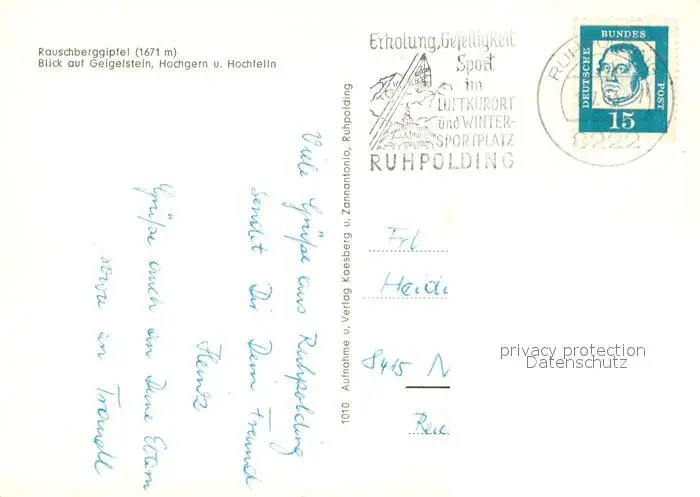 Rauschberggipfel (1671 m)
Blick auf Geigelstein, Hochgern u. Hochfelln
Erholung, Geselligkeit
Sport
im
LUFTKURORT
und WINTER-
SPORTPLATZ
RUHPOLDING
DEUTSCHE
BUNDES
POST
15
8222
1010 Aufnahme u. Verlag Kaesberg u. Zannantonio, Ruhpolding
Viele Grüße aus Ruhpolding
sendet Dir Dein Freund
Heinz
Grüße auch an Deine Eltern
Frl
Heidi
8415 N
privacy protection
Datenschutz